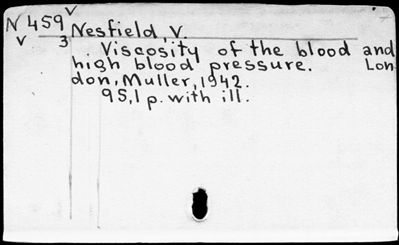 N 459 v
v 3
Nesfield, V.
Viscosity of the blood and
high blood pressure. Lon
don, Muller, 1942.
95,1 p. with ill.